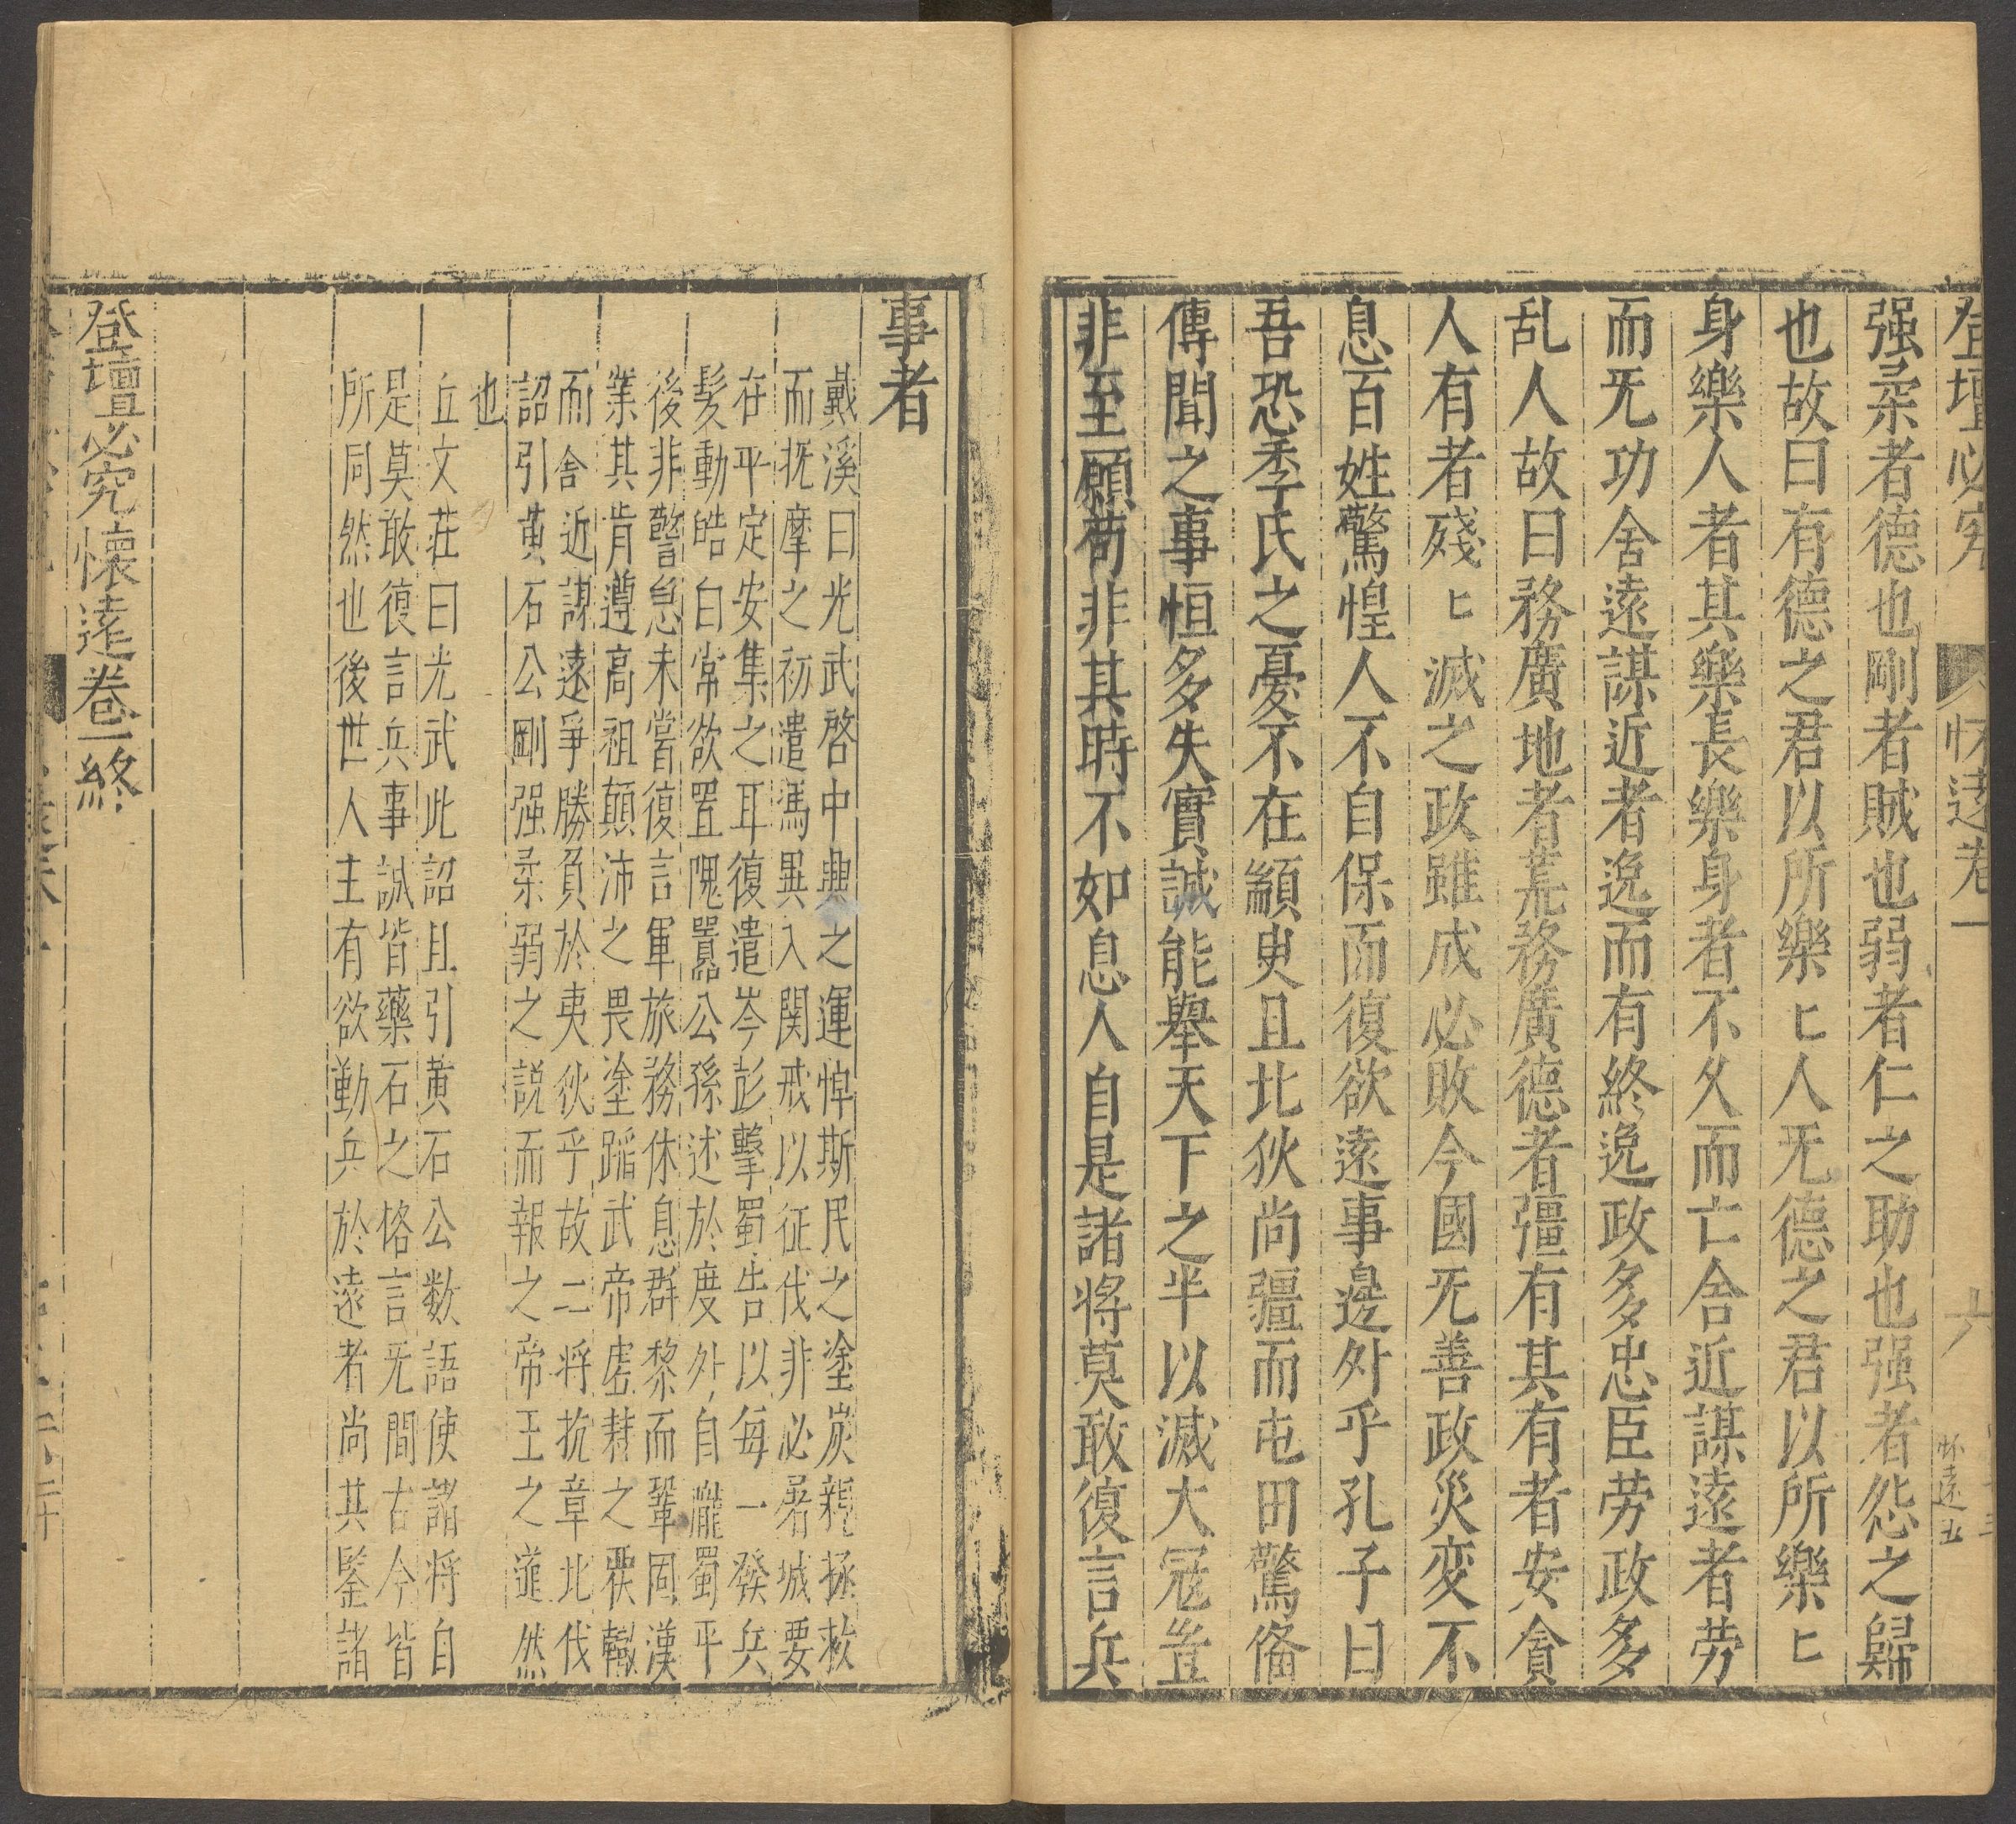 登壇必究
怀遠卷一
六
怀遠五
强柔者德也剛者賊也弱者仁之助也强者怨之歸
也故曰有德之君以所樂匕人旡德之君以所樂匕
身樂人者其樂長樂身者不久而亡舍近謀遠者劳
而旡功舍遠謀近者逸而有終逸政多忠臣劳政多
乱人故曰務廣地者荒務廣德者彊有其有者安貪
人有者殘匕滅之政雖成必敗今國旡善政災变不
息百姓驚惶人不自保而復欲遠事邊外乎孔子曰
吾恐季氏之憂不在顓臾且北狄尚彊而屯田驚俻
傳聞之事恒多失實誠能舉天下之半以滅大冦豈
非至願苟非其時不如息人自是諸将莫敢復言兵
事者
戴溪曰光武啓中興之運悼斯民之塗炭親拯救
而抚摩之初遣馮異入関戒以征伐非必畧城要
在平定安集之耳復遣岑彭擊蜀告以每一發兵
髮動皓白常欲置隗嚣公孫述於度外自隴蜀平
後非警急未嘗復言軍旅務休息群黎而鞏固漢
業其肯遵高祖顛沛之畏塗蹈武帝虗耗之覆轍
而舍近謀遠爭勝負於夷狄乎故二将抗章北伐
詔引黄石公剛强柔弱之説而報之帝王之道然
也
丘文莊曰光武此詔且引黄石公数語使諸将自
是莫敢復言兵事誠皆藥石之格言旡間古今皆
所同然也後世人主有欲勤兵於遠者尚其鑒諸
登壇必究懷遠卷一終